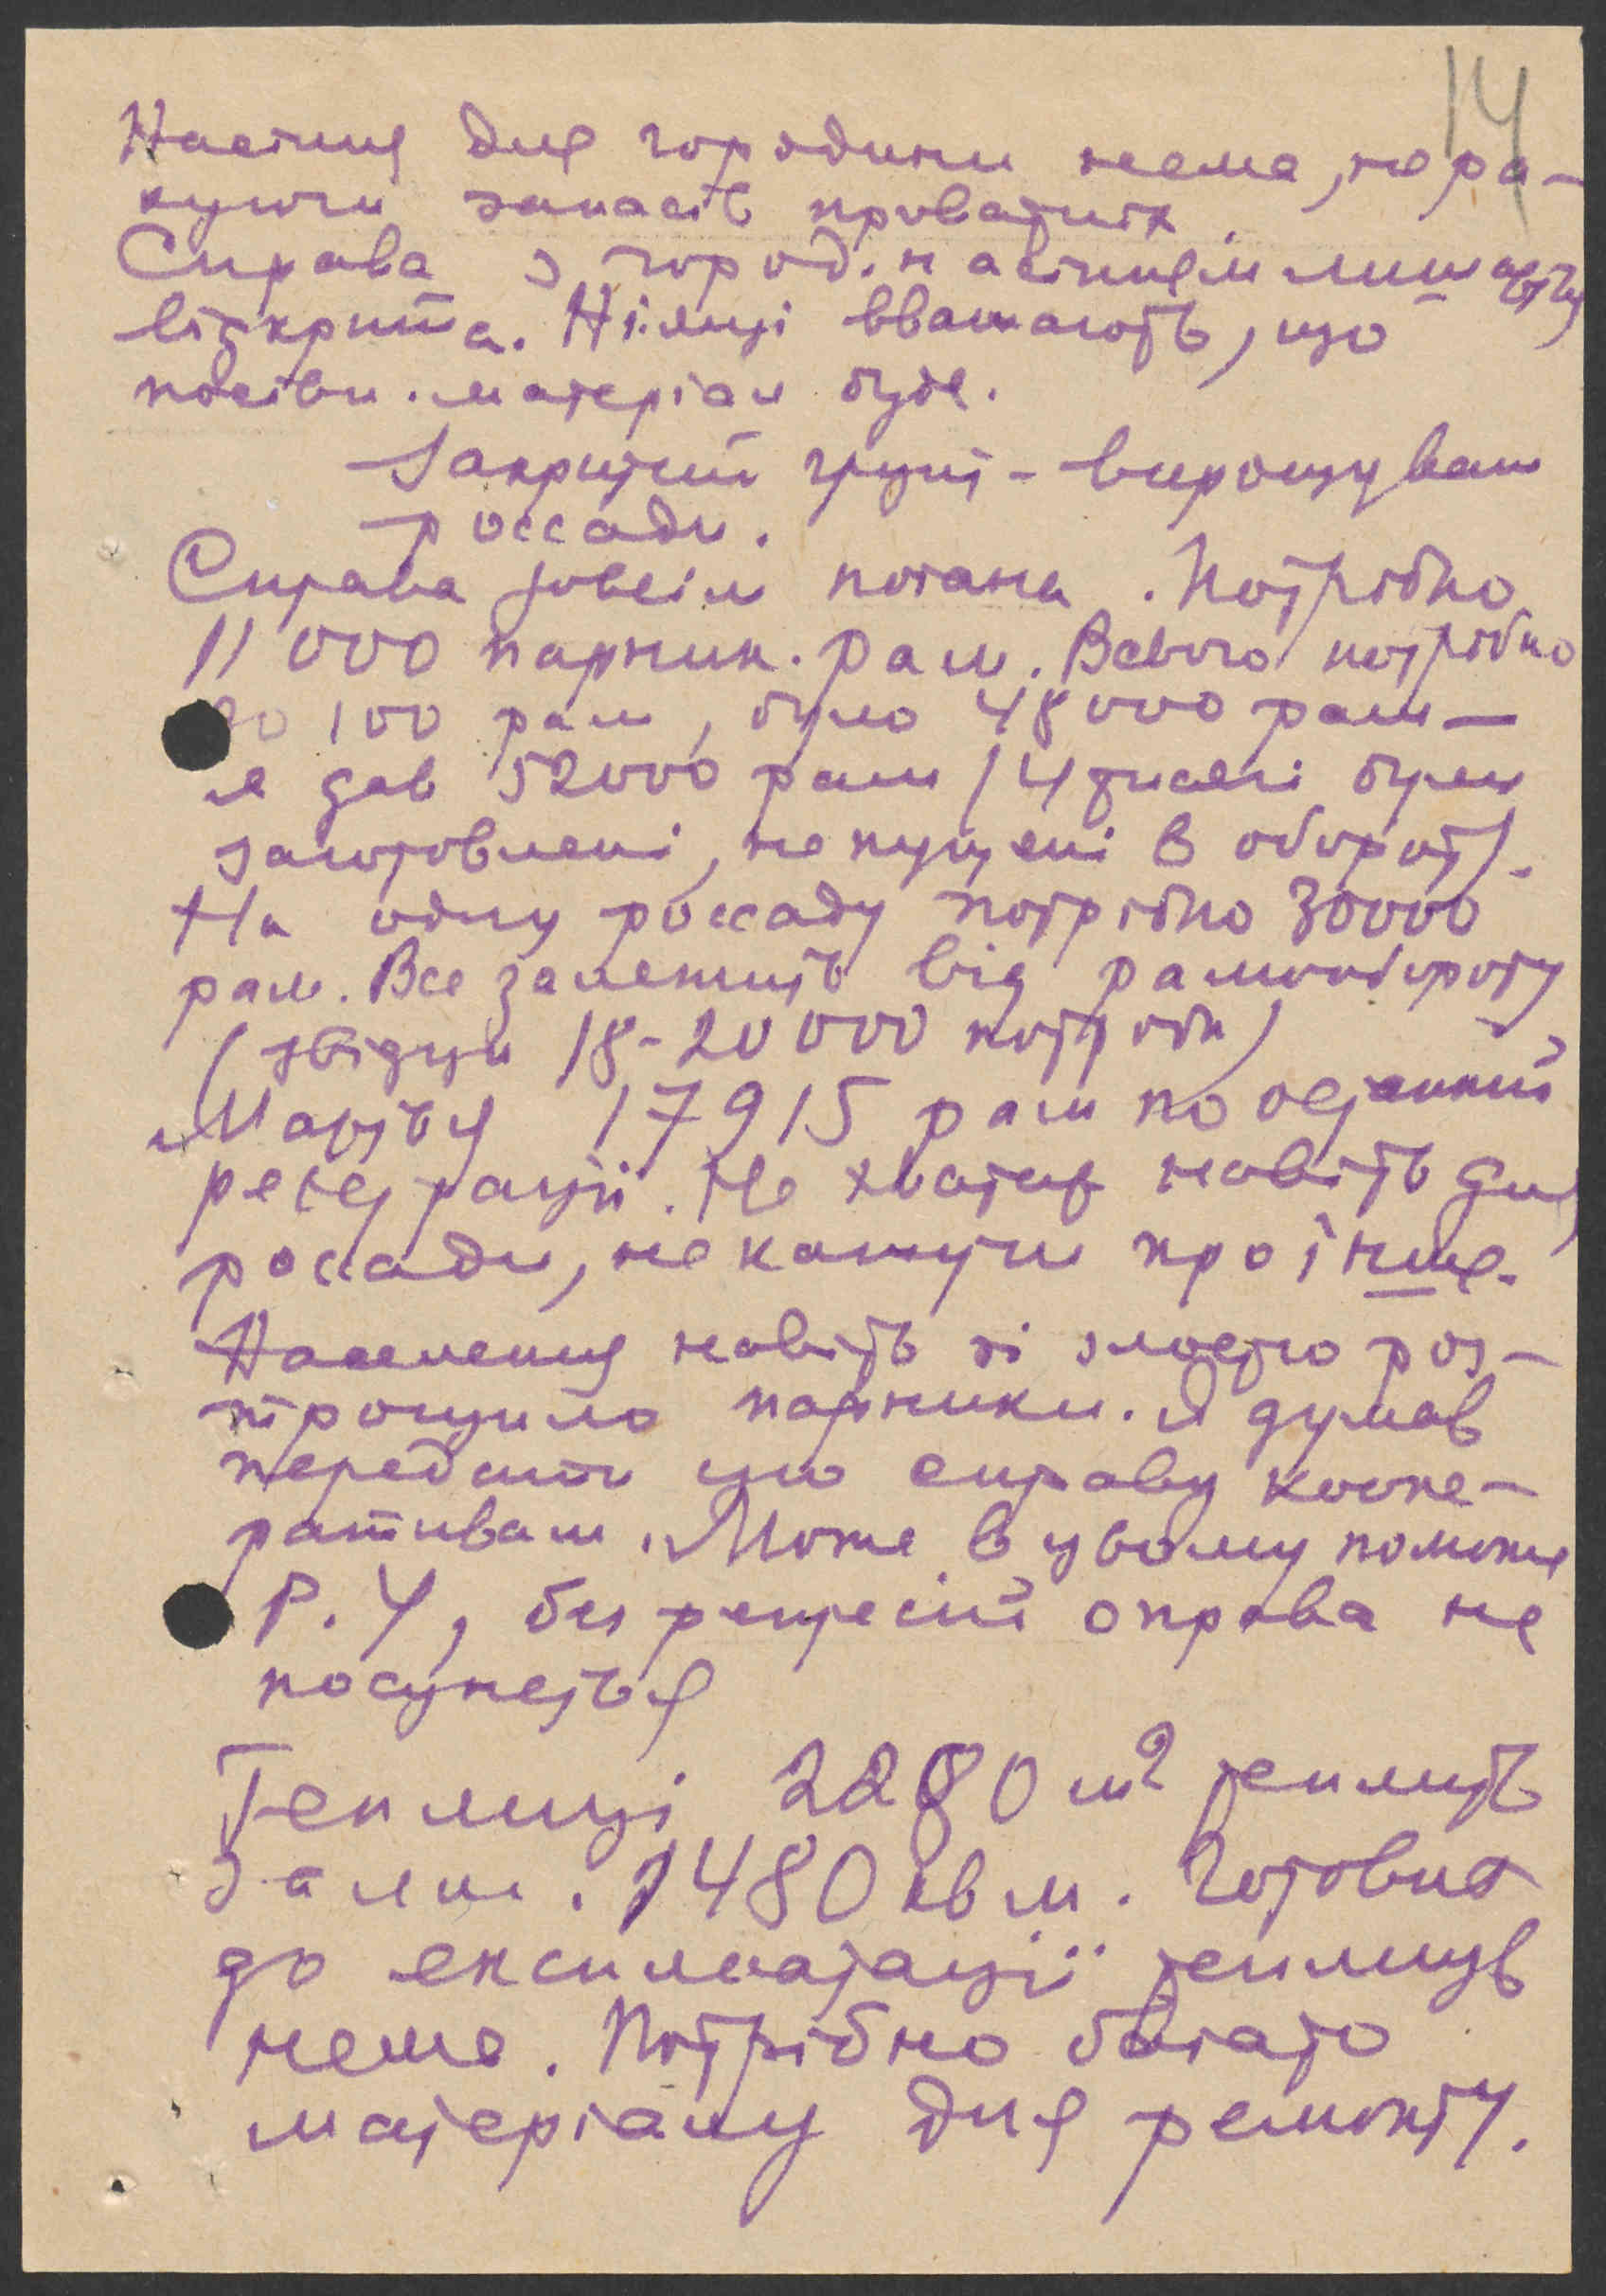 14
Насіння для городини нема, не ра-
хуючи запасів приватних.
Справа з город. насінням лишається
відкрита. Німці вважають, що
посівн. матеріал буде.
Закритий грунт - вирощуван
россади.
Справа зовсім погана. Потрібно
11000 парник. рам. Всього потрібно
100 рам, було 48000 рам —
я дав 52000 рам (4 тисячі були
заготовлені, не пущені в оборот).
На одну россаду потрібно 30000
рам. Все залежить від рамообороту
(звідци 18-20000 потрібн)
Мається 17915 рам по останній
регестрації. Не хватає навіть для
россади, не кажучи про інше.
Населення навіть зі злостю роз-
трощило парники. Я думав
передати цю справу коопе-
ративам. Може в цьому поможе
Р. У, без репресій справа не
посунеться
Теплиці 2280 м2 теплиць
залиш. 1480 кв м. Готових
до експлоатації теплиць
нема. Потрібно багато
матеріалу для ремонту.